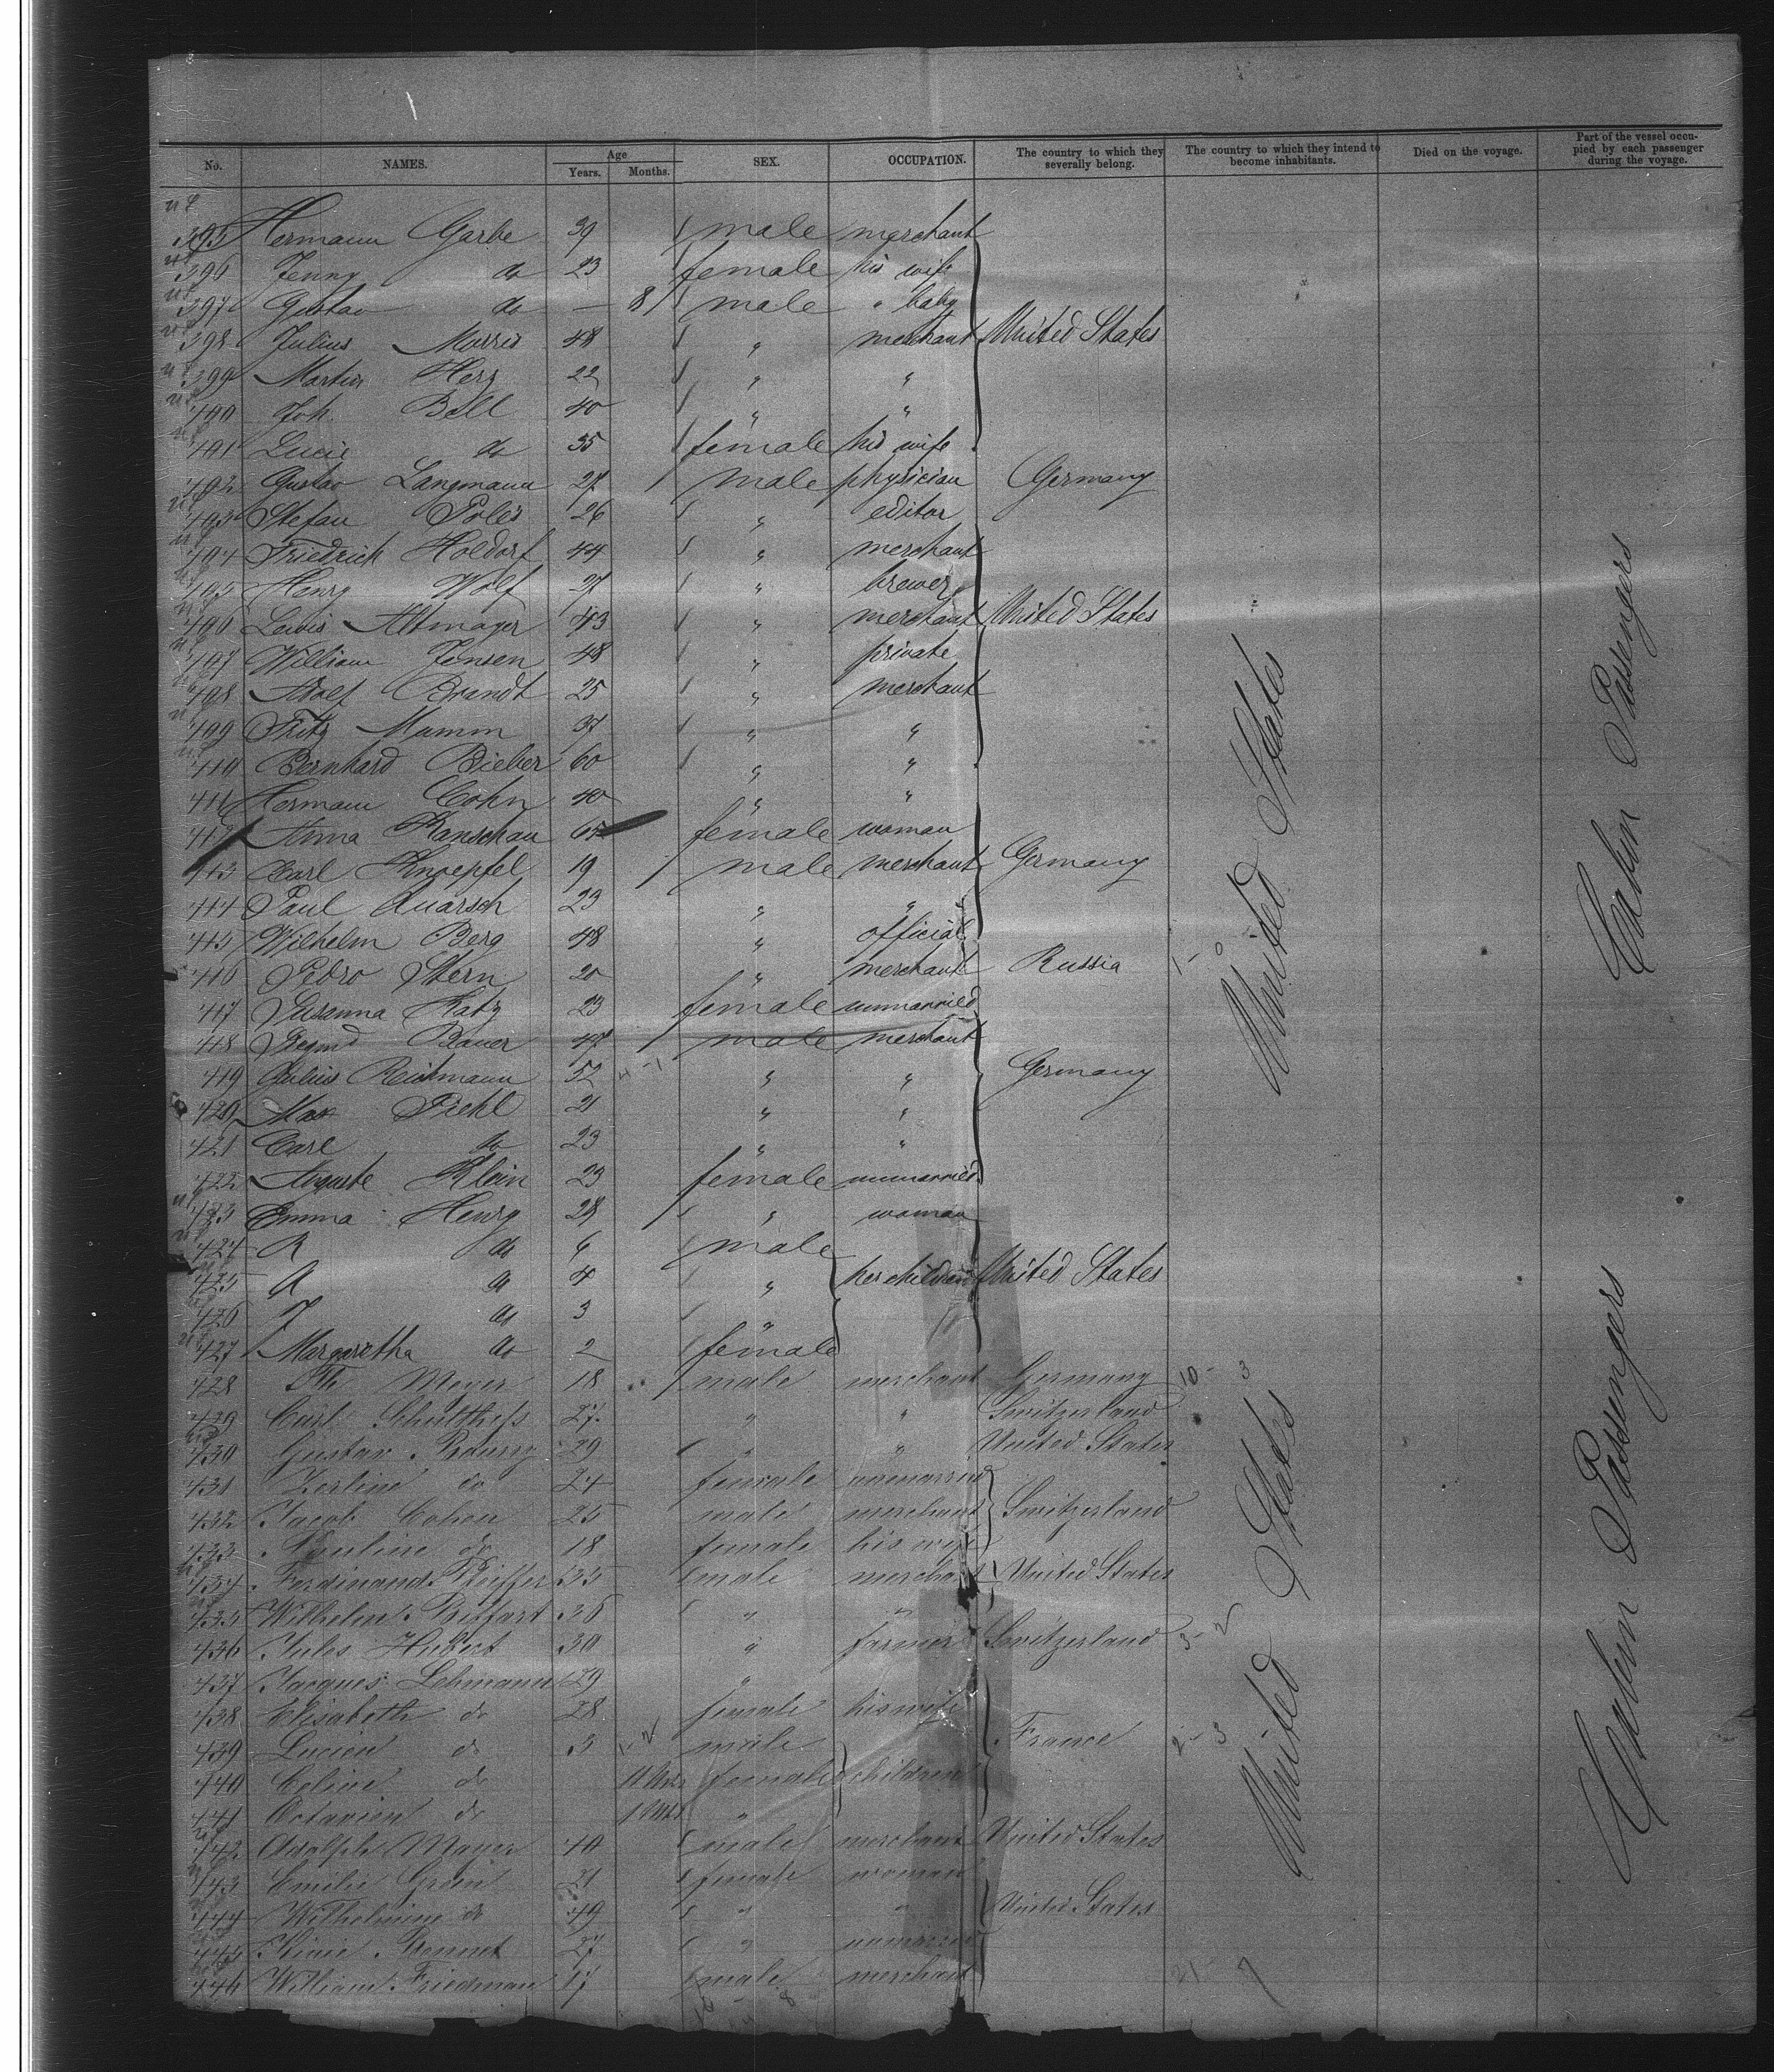 No. NAMES. Age Years. Months. SEX. OCCUPATION. The country to which they severally belong. The country to which they intend to become inhabitants. Died on the voyage. Part of the vessel occupied by each passenger during the voyage.
395 Hermann Garbe 39 male merchant
396 Jenny do 23 female his wife
397 Gustav do — 8 male " baby
398 Julius Morris 48 " merchant United States
399 Martin Herz 22 " "
400 Joh. Bell 40 " "
401 Lucie do 35 female his wife
402 Gustav Langmann 27 male physician Germany
403 Stefan Poles 26 " editor
404 Friedrich Holdorf 44 " merchant
405 Henry Wolf 27 " brewer
406 Lewis Altmayer 43 " merchant United States
407 William Jensen 48 " private
408 Adolf Brandt 25 " merchant
409 Fritz Mumm 37 " "
410 Bernhard Bieber 60 " "
411 Hermann Cohn 40 " "
412 Anna Kanschau 65 female woman
413 Carl Knoepfel 19 male merchant Germany
414 Paul Quarsch 23 " "
415 Wilhelm Berg 48 " official
416 Pedro Stern 20 " merchant Russia
417 Susanna Katz 23 female unmarried
418 Siegmd Bauer 47 male merchant
419 Julius Reichmann 52 " " Germany
420 Max Piehl 21 " "
421 Carl do 23 " "
422 Auguste Klein 23 female unmarried
423 Emma Henry 28 " woman
424 R do 6 male
425 A do 4 " her children United States
426 J do 3 "
427 Margaretha do 2 female
428 Otto Meyer 18 male merchant Germany
429 Carl Schulthess 27 " " Switzerland
430 Gustav 29 " " United States
431 Zerline do 24 female unmarried
432 Jacob Cohen 25 male merchant Switzerland
433 Pauline do 18 female his wife
434 Ferdinand Pfeiffer 35 male merchant United States
435 Wilhelm 36 " "
436 Jules Hubert 30 " farmer Switzerland
437 Jacques Lehmann 29 "
438 Elisabeth do 28 female his wife
439 Lucien do 3 male France
440 Celine do 11 Mts female children
441 Octavien do 1 Mts "
442 Adolph Mayer 40 male merchant United States
443 Emilie Grün 21 female woman
444 Wilhelmine do 49 " " United States
445 27 " unmarried
446 William Friedman 17 male merchant
United States
United States
Cabin Passengers
Cabin Passengers